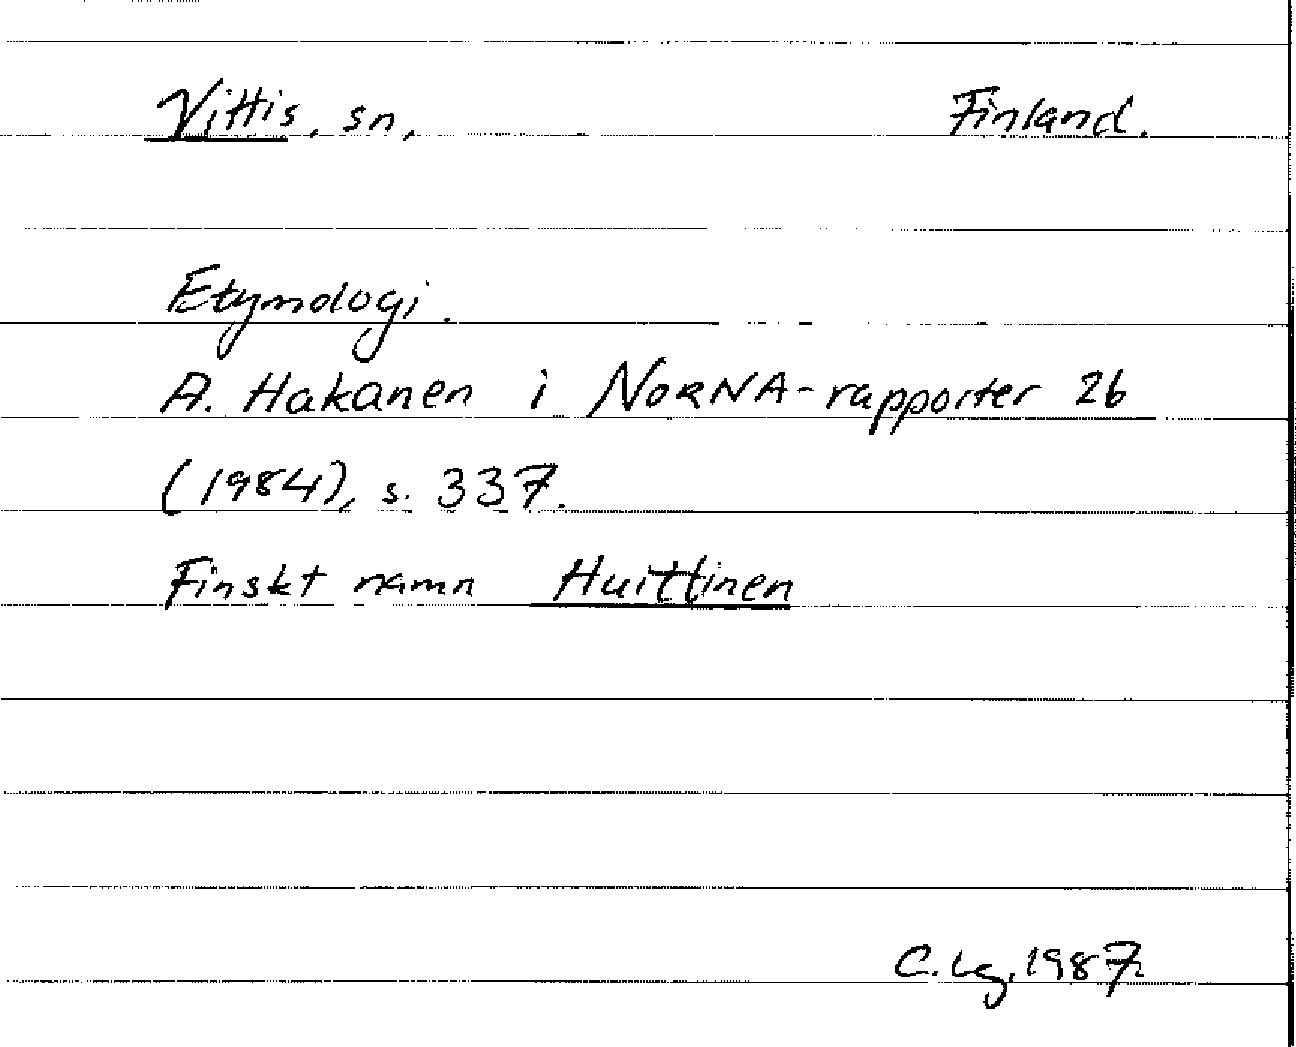 Vittis, sn, Finland.
Etymologi.
A. Hakanen i NORNA-rapporter 26
(1984), s. 337.
Finskt namn Huittinen
C. Lg, 1987